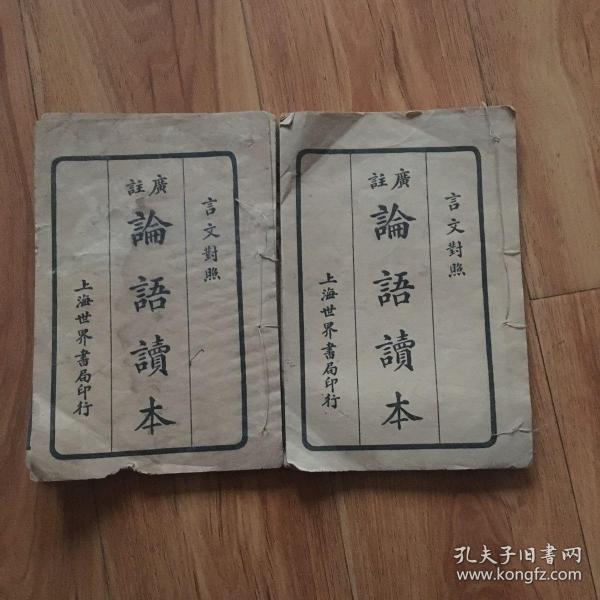 言文對照
廣註
論語讀本
上海世界書局印行
言文對照
廣註
論語讀本
上海世界書局印行
孔夫子旧书网
www.kongfz.com